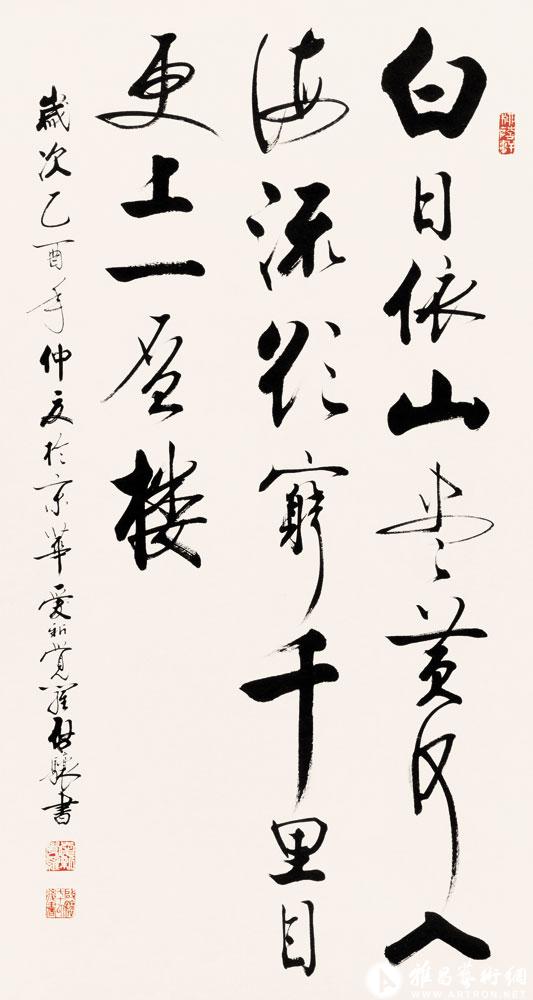 白日依山盡黄河入
海流欲窮千里目
更上一層樓
歲次乙酉年仲夏於京華愛新覺羅啟驤書
雅昌藝術網
WWW.ARTRON.NET